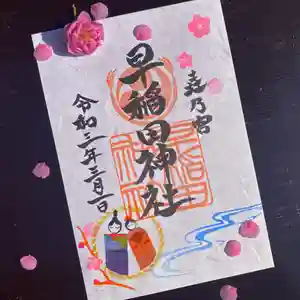 㐂乃宮
早稲田神社
令和三年三月一日